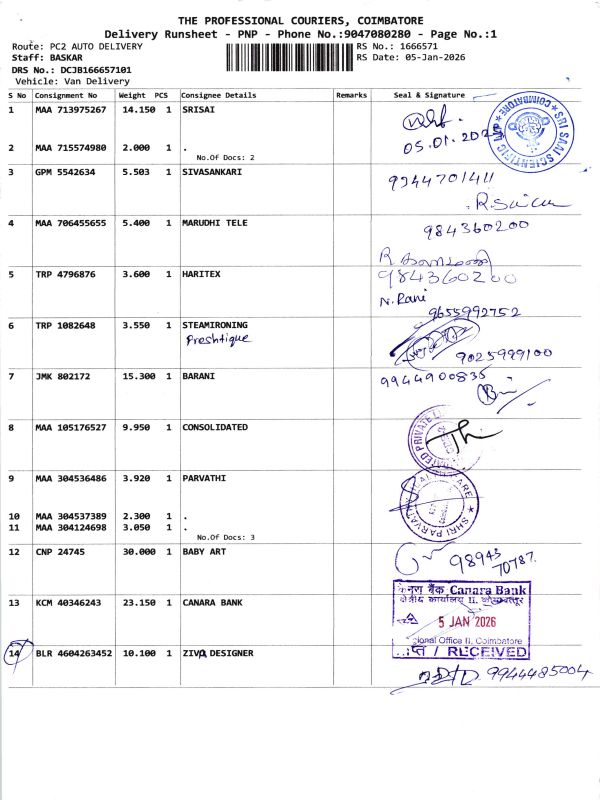 THE PROFESSIONAL COURIERS, COIMBATORE
Delivery Runsheet - PNP - Phone No.:9047080280 - Page No.:1
Route: PC2 AUTO DELIVERY
RS No.: 1666571
Staff: BASKAR
RS Date: 05-Jan-2026
DRS No.: DCJB166657101
Vehicle: Van Delivery
S No Consignment No Weight PCS Consignee Details Remarks Seal & Signature
1 MAA 713975267 14.150 1 SRISAI
SRI SAAI SCIENTIFIC COIMBATORE
05.01.2026
2 MAA 715574980 2.000 1 .
No.Of Docs: 2
3 GPM 5542634 5.503 1 SIVASANKARI
9344701411
4 MAA 706455655 5.400 1 MARUDHI TELE
984360200
5 TRP 4796876 3.600 1 HARITEX
984360200
N. Rani
9655992752
6 TRP 1082648 3.550 1 STEAMIRONING
Preshtique
9025999100
7 JMK 802172 15.300 1 BARANI
9944900835
8 MAA 105176527 9.950 1 CONSOLIDATED
PRIVATE
9 MAA 304536486 3.920 1 PARVATHI
SHRI PARVATHI
10 MAA 304537389 2.300 1 .
11 MAA 304124698 3.050 1 .
No.Of Docs: 3
12 CNP 24745 30.000 1 BABY ART
98943
70787
13 KCM 40346243 23.150 1 CANARA BANK
केनरा बैंक Canara Bank
क्षेत्रीय कार्यालय II, कोयम्बत्तूर
5 JAN 2026
ional Office II, Coimbatore
प्त / RECEIVED
14 BLR 4604263452 10.100 1 ZIVA DESIGNER
9944485004